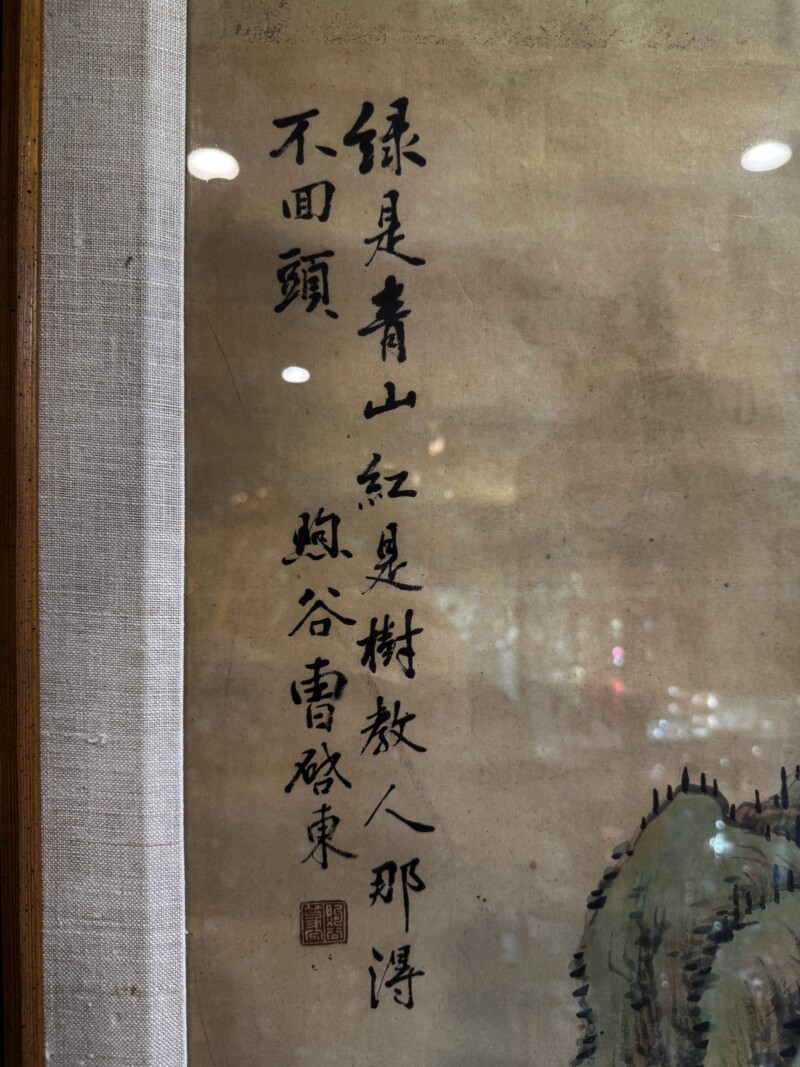 緑是青山紅是樹教人那得
不回頭
煦谷曹啓東